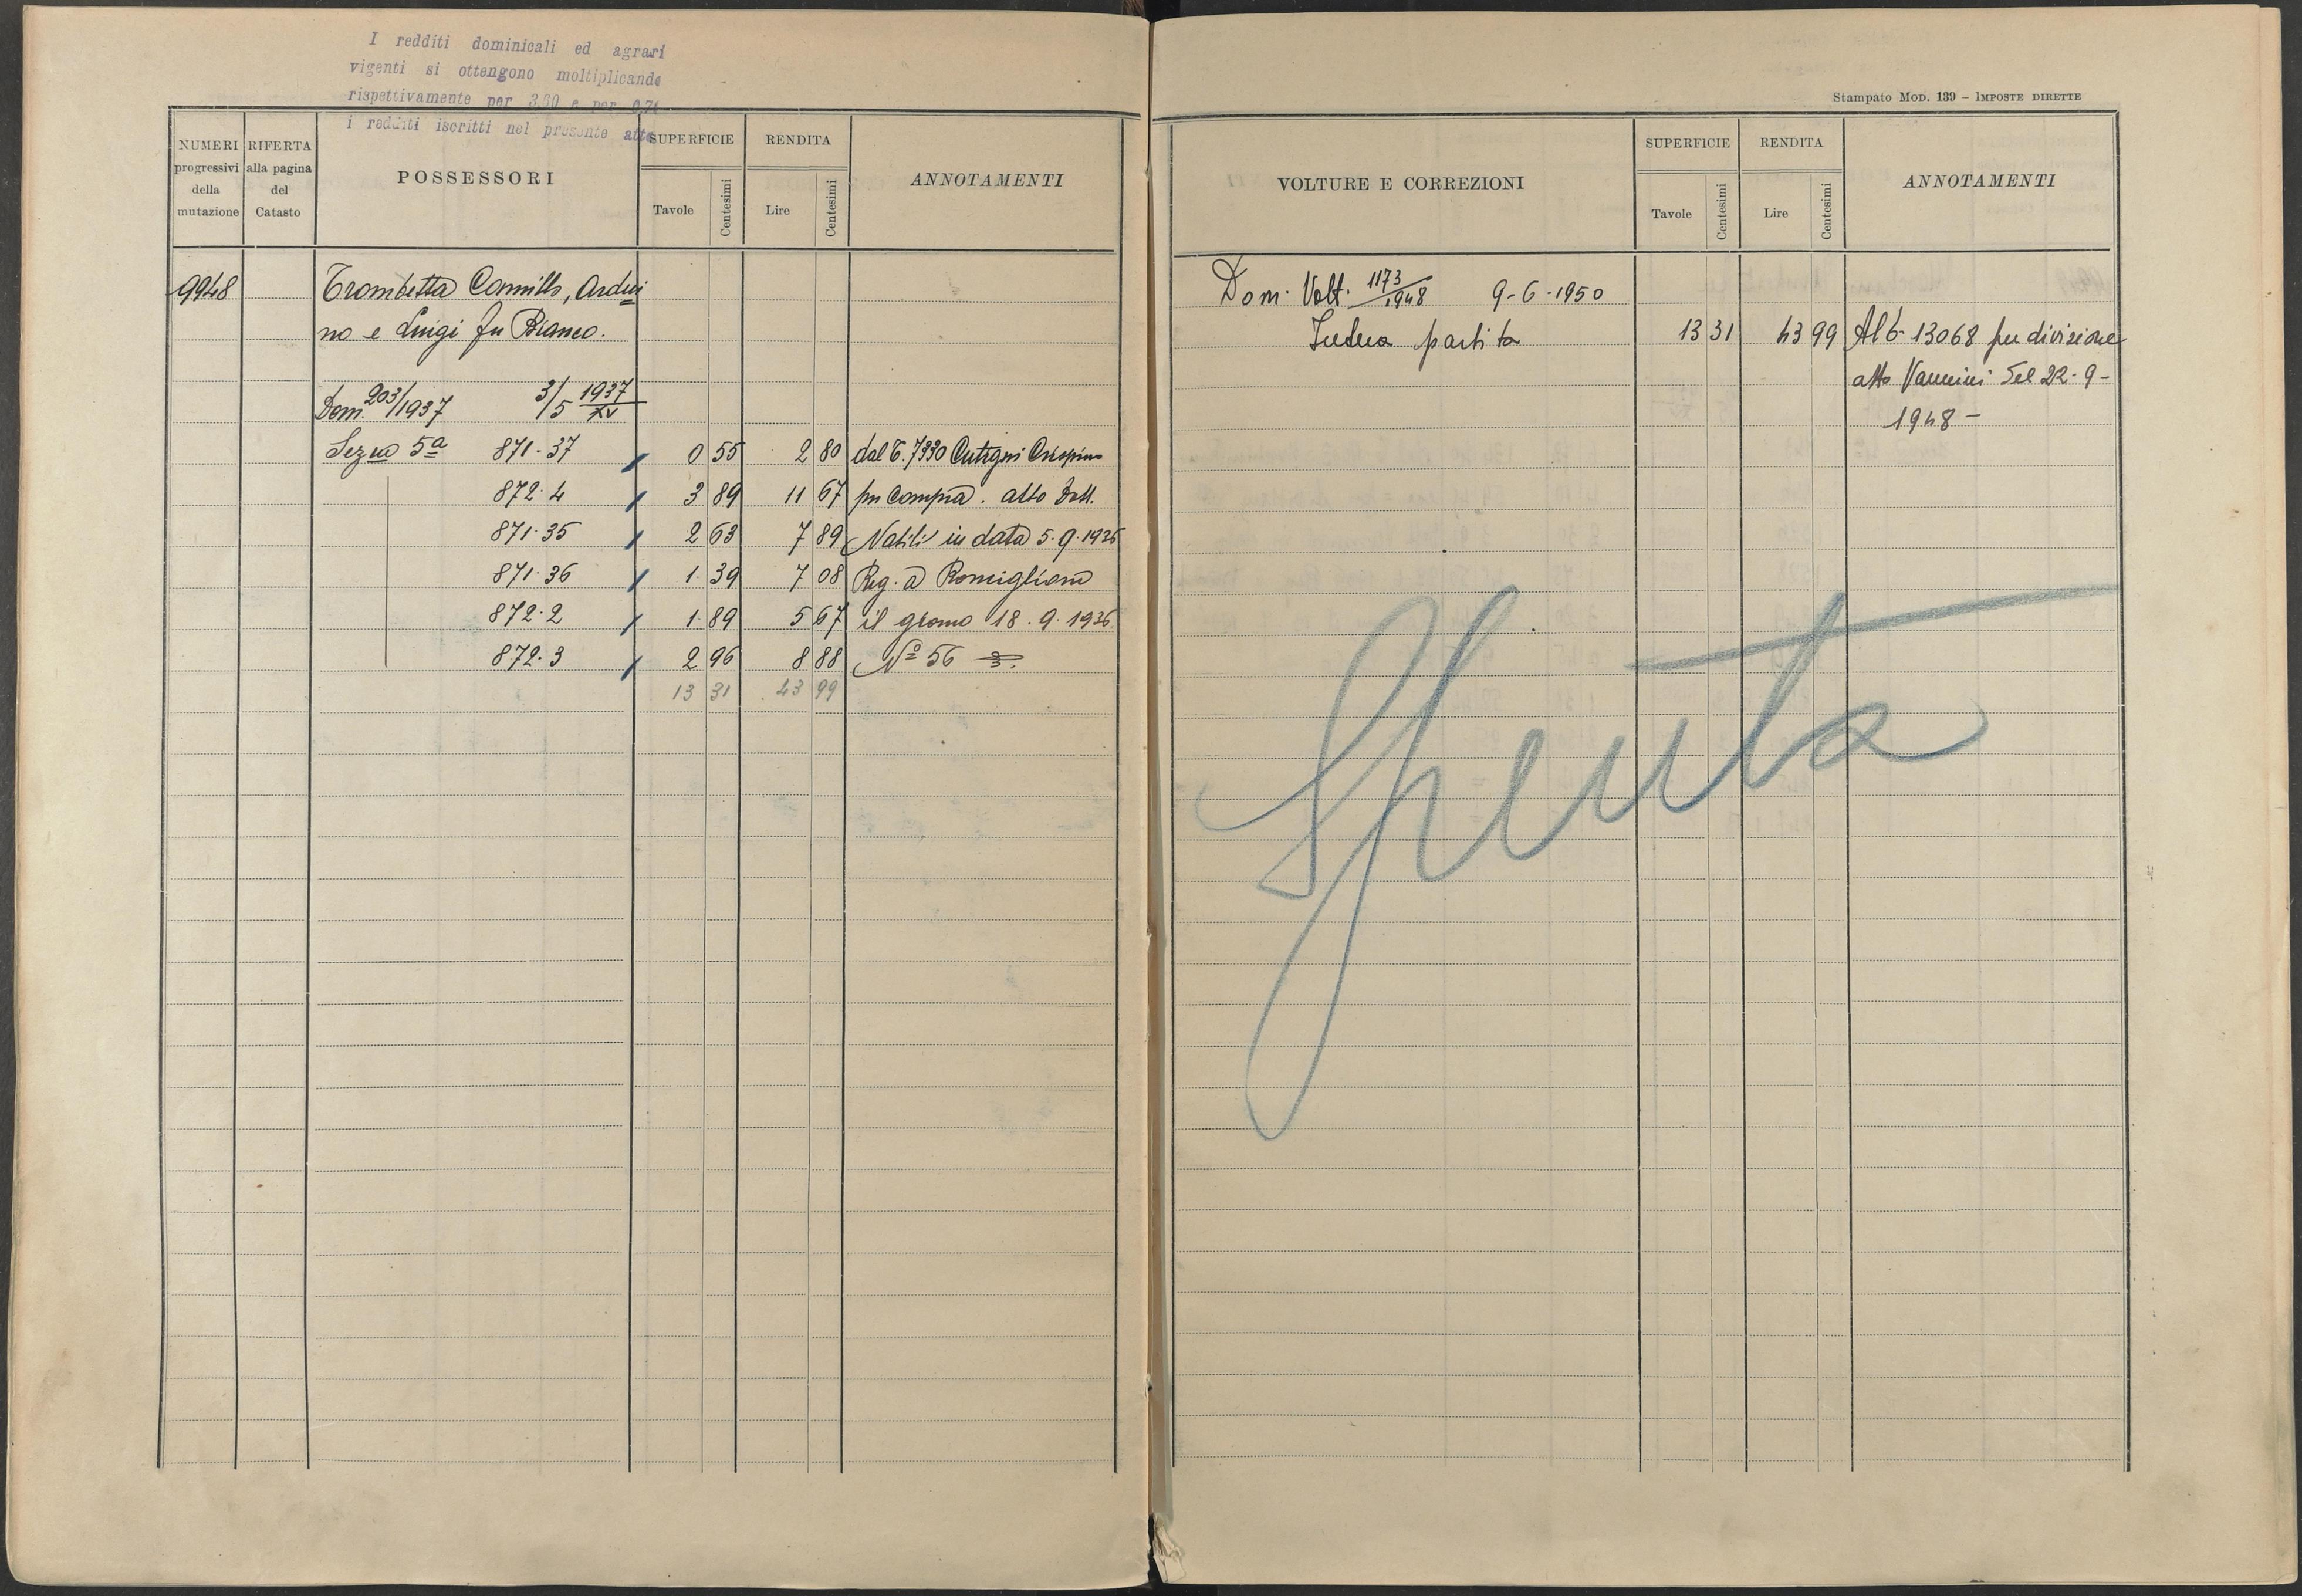 I redditi dominicali ed agrari
vigenti si ottengono moltiplicando
rispettivamente per 3,60 e per
i redditi iscritti nel presente atto
NUMERI progressivi della mutazione
RIFERTA alla pagina del Catasto
POSSESSORI
SUPERFICIE
Tavole Centesimi
RENDITA
Lire Centesimi
ANNOTAMENTI
9948 Trombetta Camillo, Ardui
no e Luigi fu Bianco.
Dom. 203/1937 3/5 1937 XV
Sezne 5a 871-37 0 55 2 80 dal T. 7330 Cutigni Crispino
872-4 3 89 11 67 per Compra. atto Dott.
871-35 2 63 7 89 Natili in data 5-9-1936
871-36 1 39 7 08 Reg. a Ronciglione
872-2 1 89 5 67 il giorno 18-9-1936
872-3 2 96 8 88 No 56
13 31 43 99
Stampato MOD. 139 - IMPOSTE DIRETTE
VOLTURE E CORREZIONI
SUPERFICIE
Tavole Centesimi
RENDITA
Lire Centesimi
ANNOTAMENTI
Dom. Volt. 1173/1948 9-6-1950
Intera partita 13 31 43 99 Al 6- 13068 per divisione
atto Vannini del 22-9-
1948-
Spenta